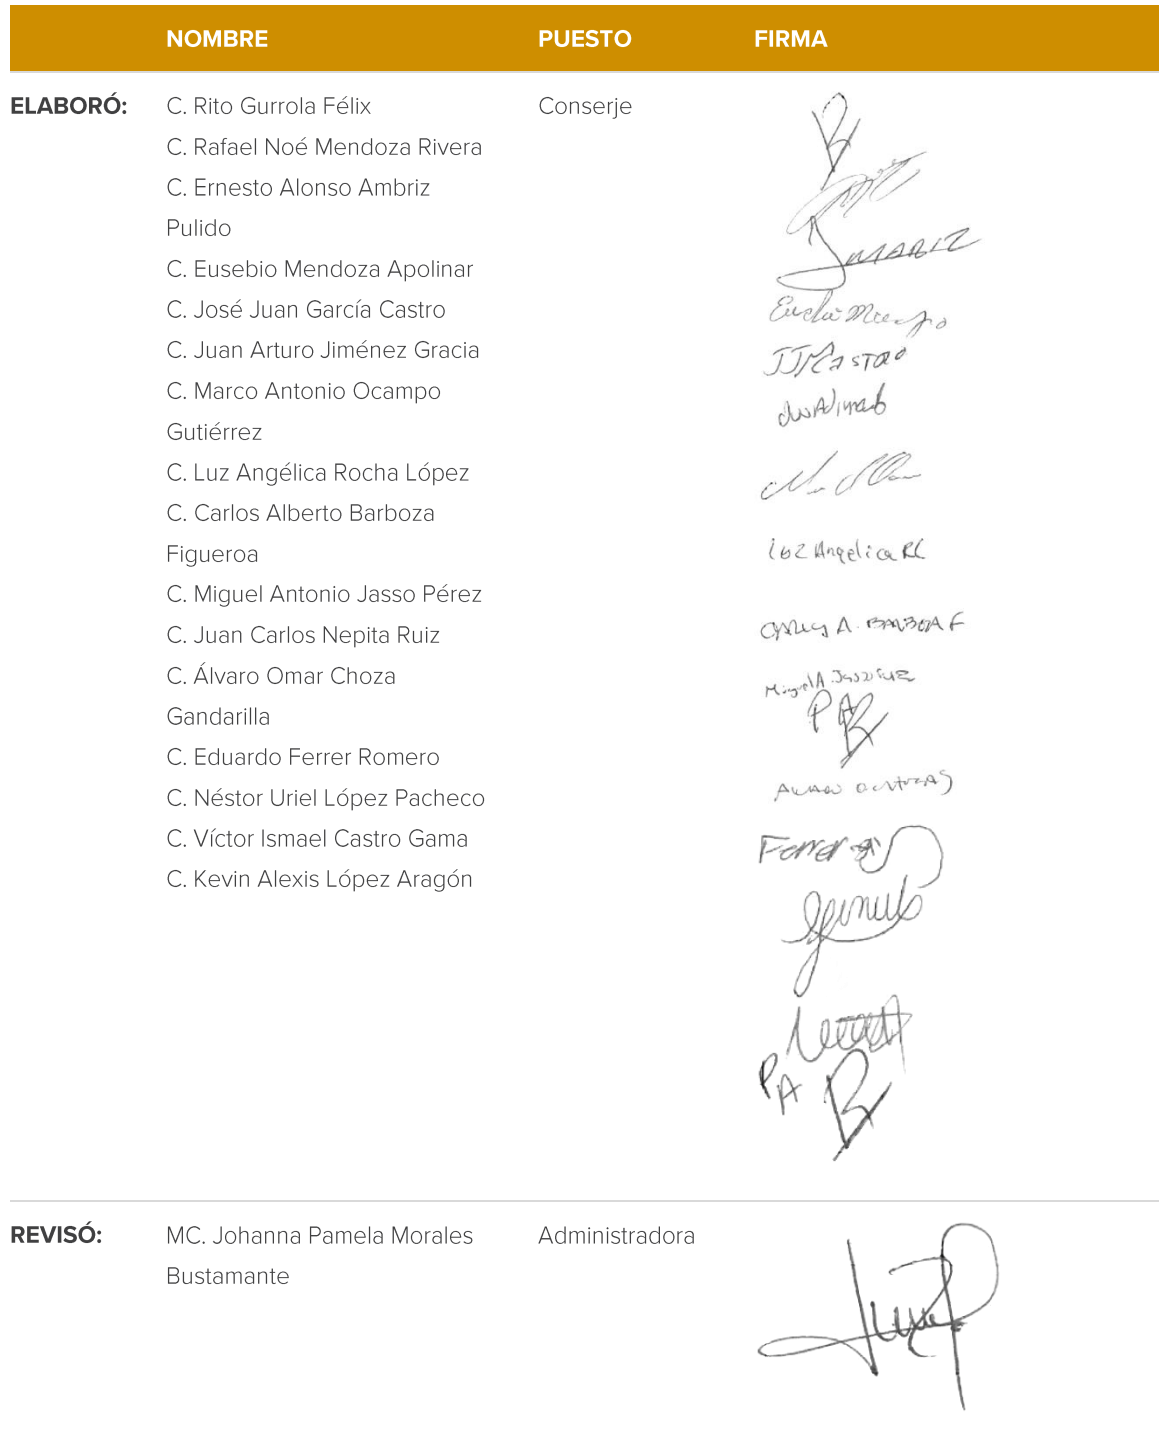 NOMBRE PUESTO FIRMA
ELABORÓ: C. Rito Gurrola Félix Conserje
C. Rafael Noé Mendoza Rivera
C. Ernesto Alonso Ambriz
Pulido
C. Eusebio Mendoza Apolinar
C. José Juan García Castro
C. Juan Arturo Jiménez Gracia
C. Marco Antonio Ocampo
Gutiérrez
C. Luz Angélica Rocha López
C. Carlos Alberto Barboza
Figueroa
C. Miguel Antonio Jasso Pérez
C. Juan Carlos Nepita Ruiz
C. Álvaro Omar Choza
Gandarilla
C. Eduardo Ferrer Romero
C. Néstor Uriel López Pacheco
C. Víctor Ismael Castro Gama
C. Kevin Alexis López Aragón
Angelica RL
Ferrer
P A
P A
REVISÓ: MC. Johanna Pamela Morales Administradora
Bustamante